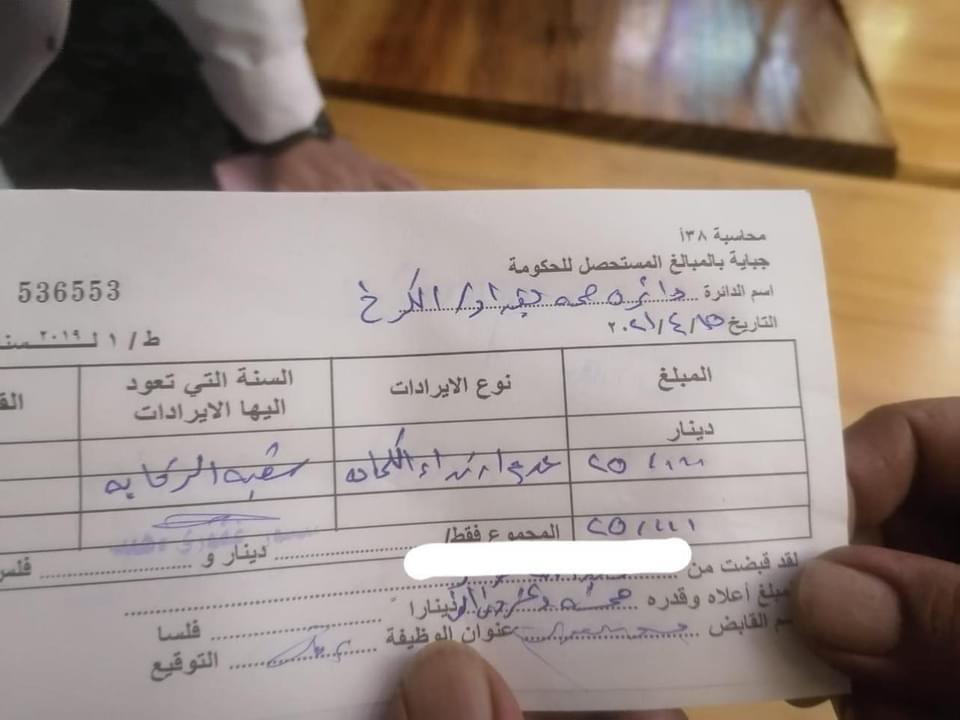 محاسبة ٣٨أ
جباية بالمبالغ المستحصل للحكومة
اسم الدائرة دائرة صحة بغداد/ الكرخ
536553
التاريخ ١٥/٤/٢٠٢١
ط/١ لـ ٢٠١٩
المبلغ
نوع الايرادات
السنة التي تعود
اليها الايرادات
دينار
٢٥,٠٠٠
عدم ارتداء الكمامه
شعبه الرقابه
٢٥,٠٠٠
المجموع فقط/ دينار و فلس
لقد قبضت من
مبلغ أعلاه وقدره خمسه وعشرون الف دينارا فلسا
القابض عنوان الوظيفة التوقيع